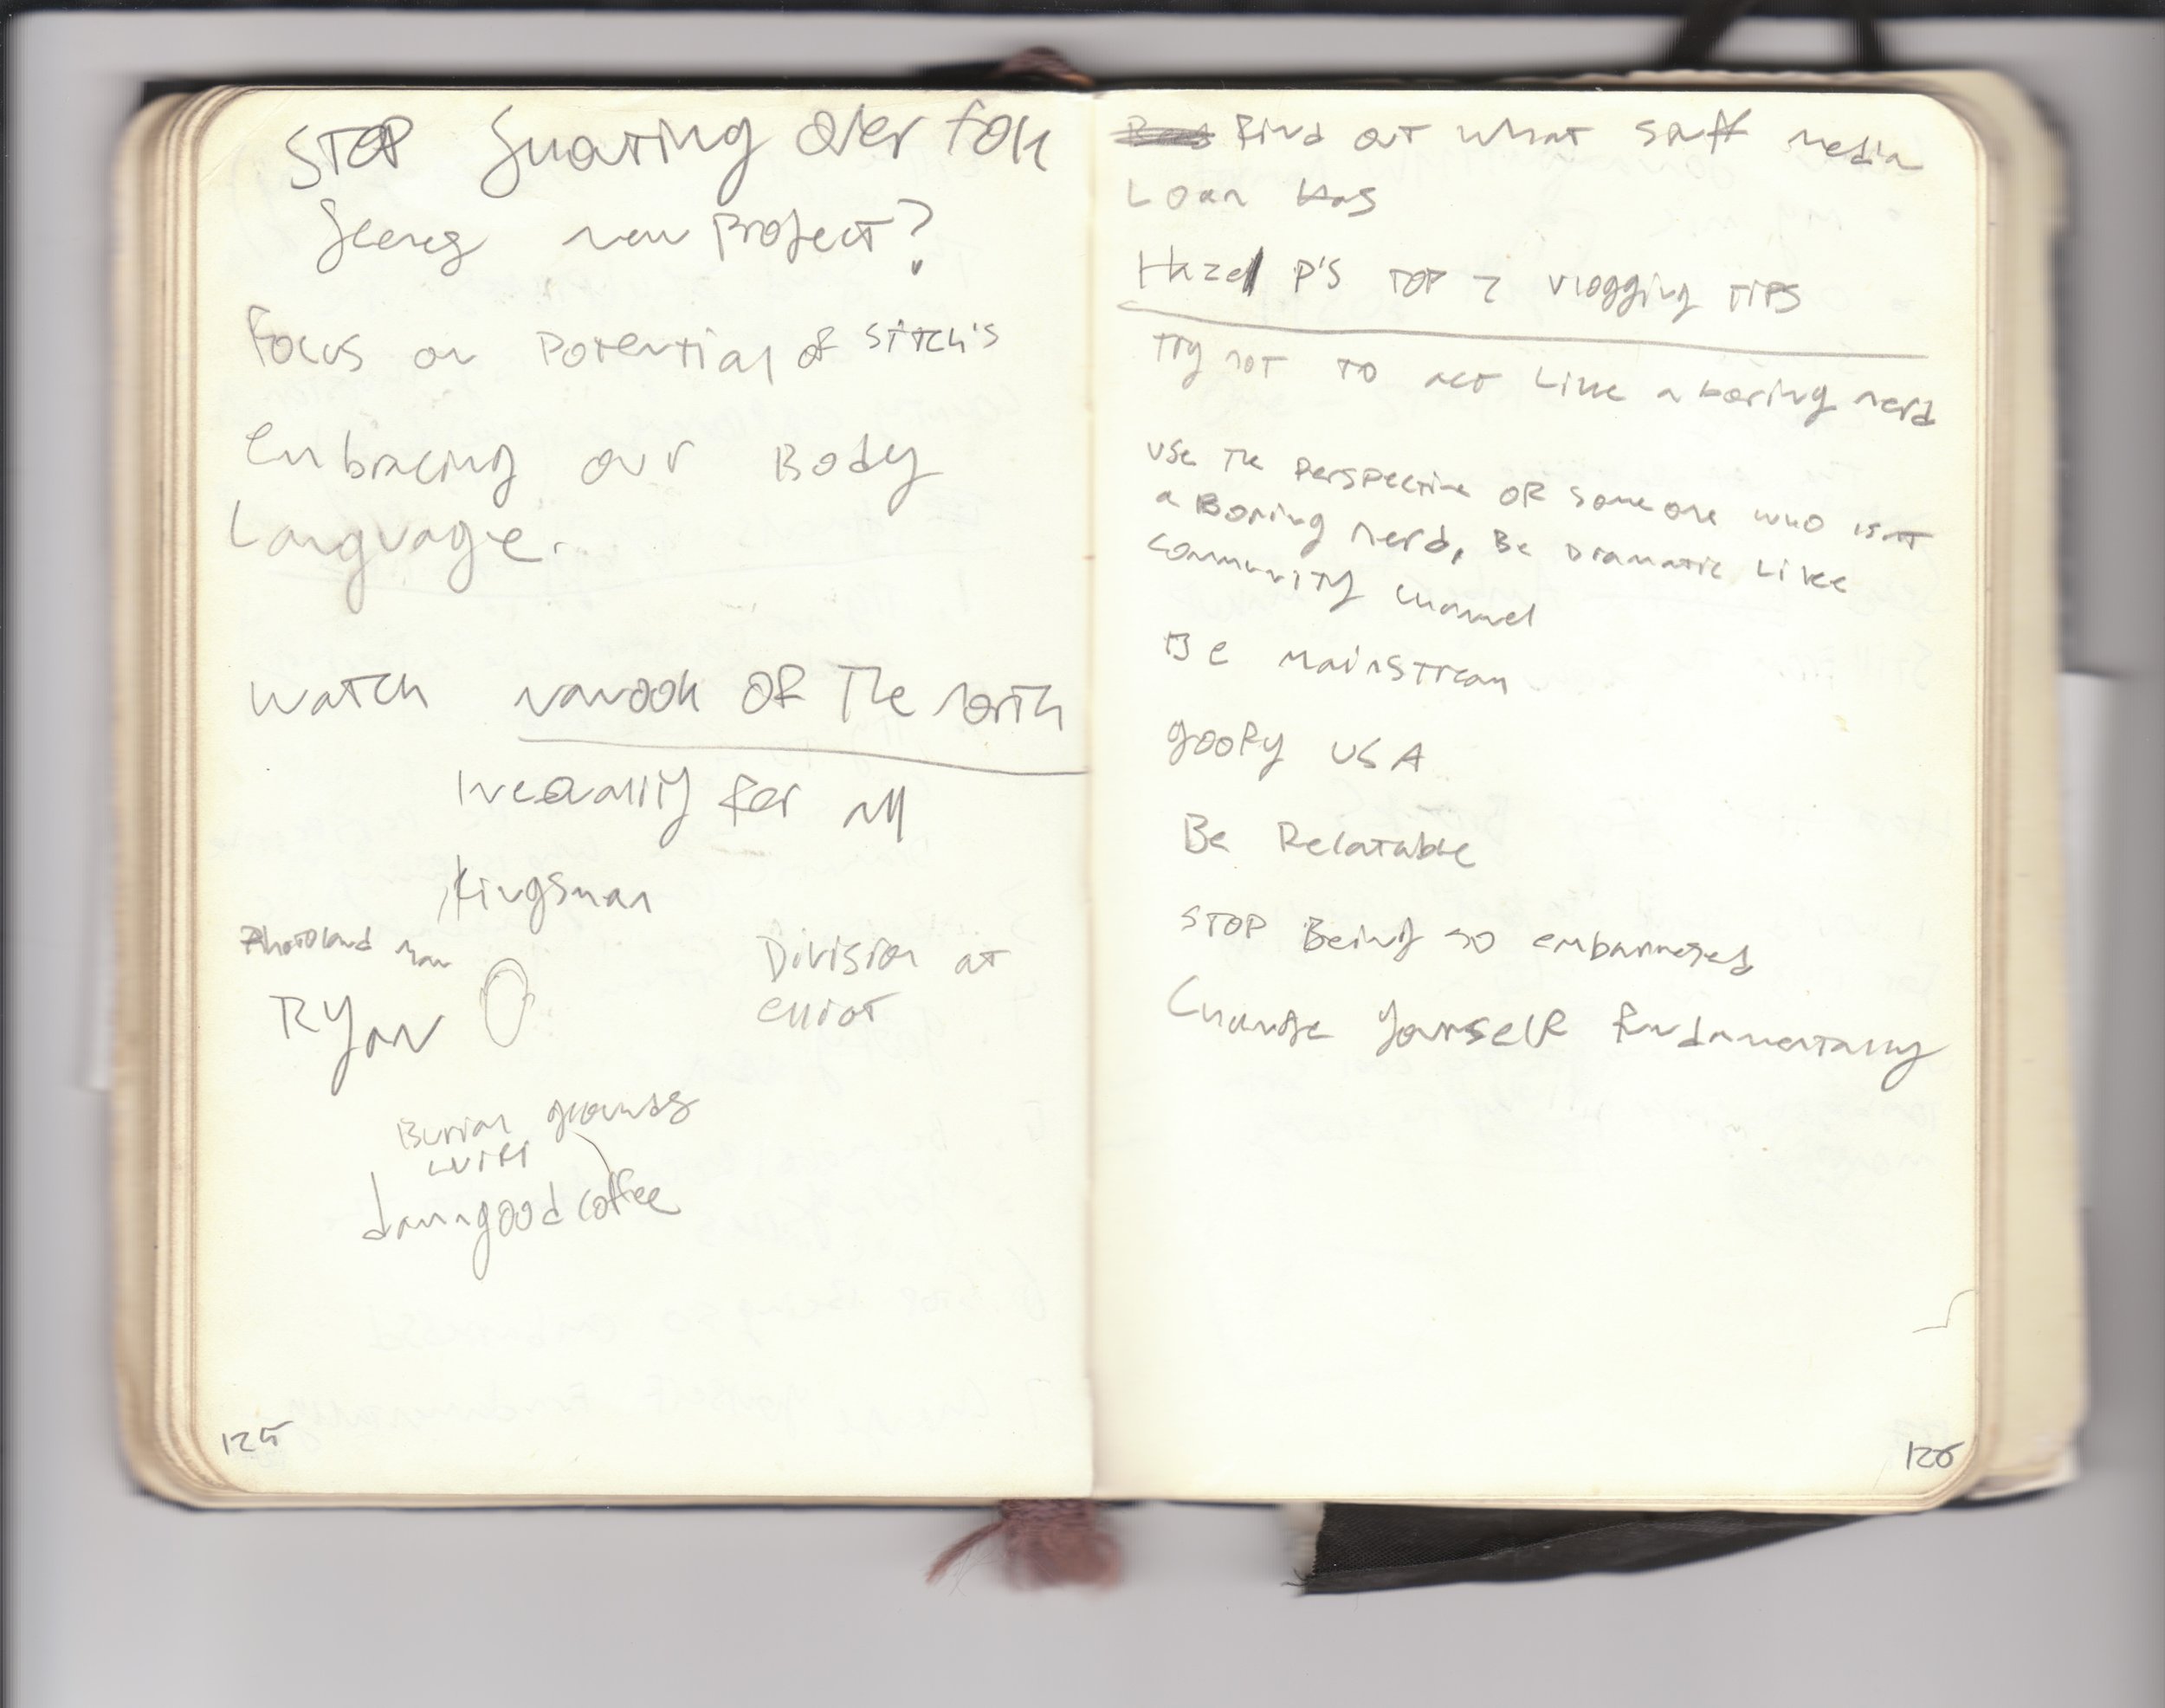 STOP Sharing over talk
new Project?
Focus on Potential of stitch's
Embracing our Body
Language.
watch nanook of The north
Inequality for all
Kingsman
Photoland man
RYan
Division at
elliot
Burial grounds
wiki
damngoodcoffee
125
Find out what stuff media
Loan Has
Hazel P's TOP 7 vlogging TIPS
Try not to act Like a boring nerd
Use The Perspective of someone who isnt
a Boring nerd, Be Dramatic Like
community channel
Be mainstream
goofy USA
Be Relatable
STOP Being so embarrased
Change Yourself fundamentally
126